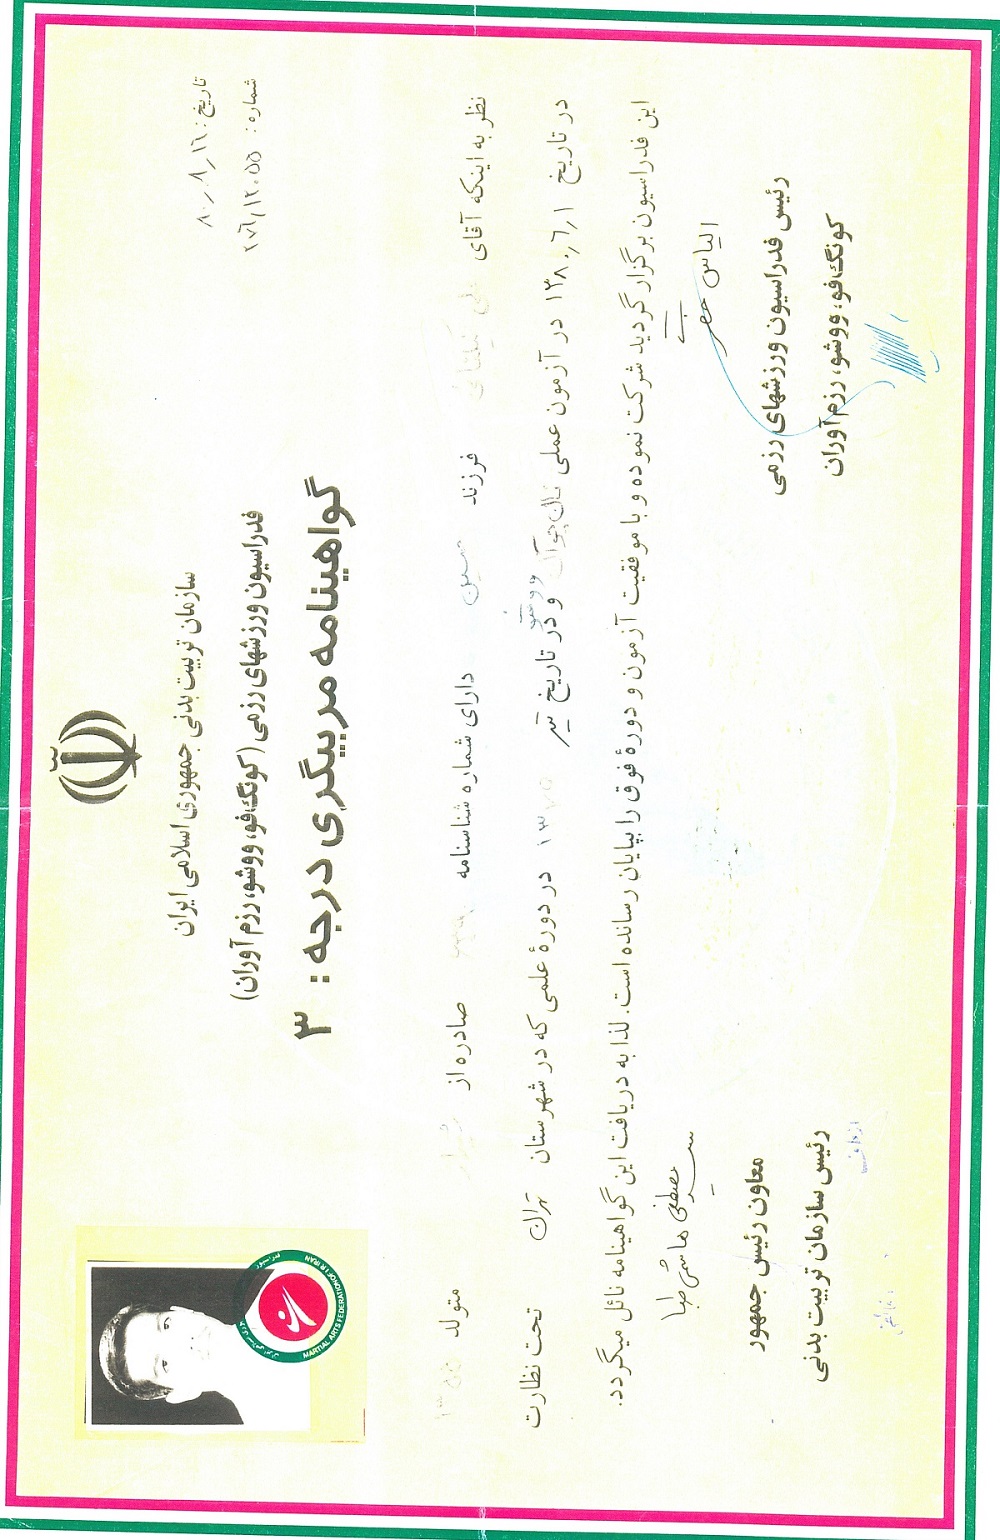 سازمان تربیت بدنی جمهوری اسلامی ایران
فدراسیون ورزشهای رزمی (کونگ‌فو، ووشو، رزم آوران)
گواهینامه مربیگری درجه : ۳
تاریخ: ۸۰٫۸٫۱۶
شماره: ۲۰۶٫۱۲۰۵۵
نظر به اینکه آقای فرزند حسین دارای شماره شناسنامه صادره از متولد
در تاریخ ۱٫۶٫۱۳۸۰ در آزمون عملی و در تاریخ تیر ۱۳۸۰ در دورهٔ علمی که در شهرستان تهران تحت نظارت
این فدراسیون برگزار گردید شرکت نموده و با موفقیت آزمون و دورهٔ فوق را بپایان رسانده است. لذا به دریافت این گواهینامه نائل میگردد.
الیاس حضرتی
رئیس فدراسیون ورزشهای رزمی
کونگ‌فو، ووشو، رزم آوران
سید مصطفی هاشمی طبا
معاون رئیس جمهور
رئیس سازمان تربیت بدنی
MARTIAL ARTS FEDERATION OF I.R.IRAN